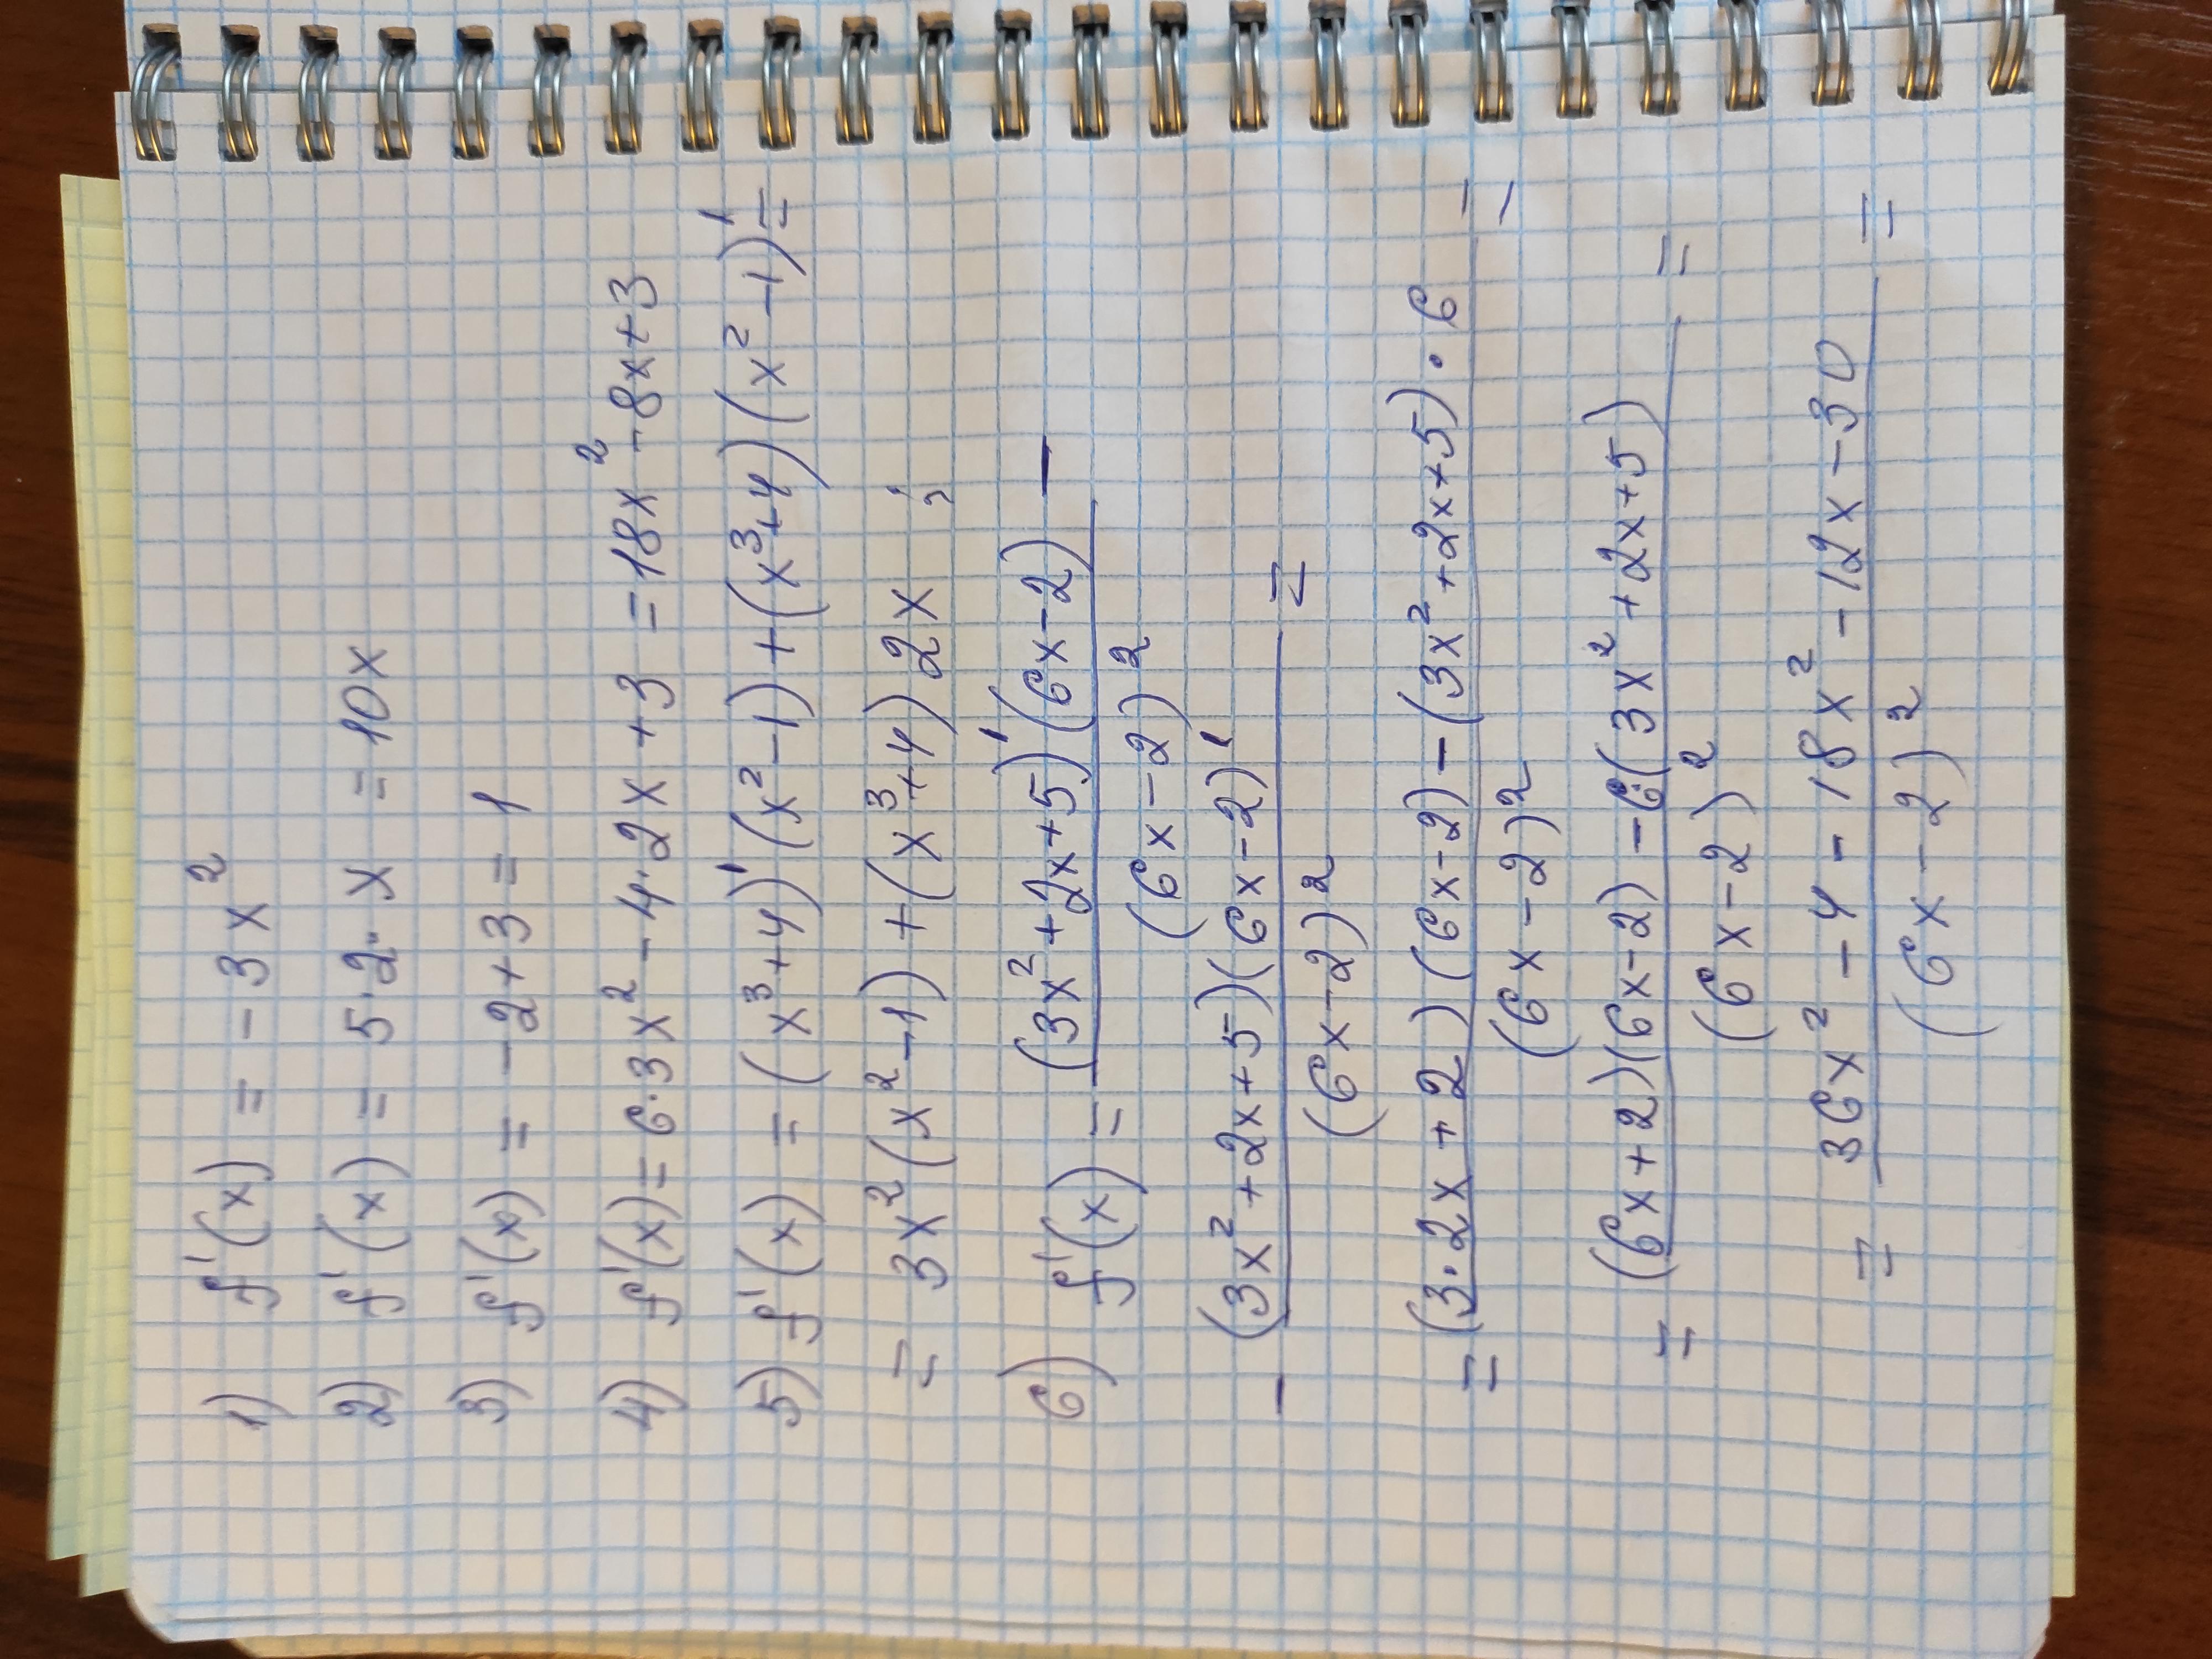 1) f'(x) = -3x²
2) f'(x) = 5·2·x = 10x
3) f'(x) = -2+3 = 1
4) f'(x) = 6·3x² - 4·2x + 3 = 18x² - 8x + 3
5) f'(x) = (x³+4)'(x²-1) + (x³+4)(x²-1)' =
= 3x²(x²-1) + (x³+4) 2x ;
6) f'(x) = (3x²+2x+5)'(6x-2) -
(6x-2)²
- (3x²+2x+5)(6x-2)' =
(6x-2)²
= (3·2x+2)(6x-2) - (3x²+2x+5)·6 =
(6x-2)²
= (6x+2)(6x-2) - 6(3x²+2x+5) =
(6x-2)²
= 36x² - 4 - 18x² - 12x - 30 =
(6x-2)²